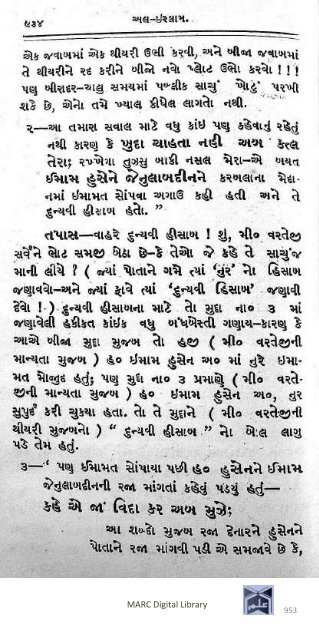 ૯૩૪
અલ-ઇસ્લામ.
એક જવાબમાં એક થીયરી ઉભી કરવી, અને બીજા જવાબમાં
તે થીયરીને રદ કરીને બીજો નવો પ્લોટ ઉભો કરવો !!!
પણ બીરાદર-આલુ સમયમાં પબ્લીક સાચુ' ખોટુ' પરખી
શકે છે, એનો તમે ખ્યાલ કીધેલ લાગતો નથી.
૨-આ તમારા સવાલ માટે વધુ કાંઇ પણ કહેવાનું રહેતું
નથી કારણ કે ખુદા ચાહતા નહીં અબ કત્લ
તેરા; રખ્ખેગા તુઝસુ બાકી નસલ મેરા-એ બયત
ઈમામ હુસેને જેનુલાબદીનને કરબલાના મેદા-
નમાં ઈમામત સોંપવા અગાઉ કહી હતી અને તે
દુન્યવી હીસાબ હતો. ”
તપાસ-વાહરે દુન્યવી હીસાબ ! શું, મી૦ વરતેજી
સર્વેને ભોટ સમજી બેઠા છે-કે તેઓ જે કહે તે સાચું'જ
માની લીયે ? ( જ્યાં પોતાને ગમે ત્યાં 'નુર' નો હિસાબ
જણાવવો-અને જ્યાં ફાવે ત્યાં 'દુન્યવી હિસાબ' જણાવી
દેવો ! ) દુન્યવી હીસાબના માટે તો મુદ્દા ના૦ ૩ માં
જણાવેલી હકીકત કાંઈક વધુ બંધબેસ્તી ગણાય-કારણ કે
આએ બીજા મુદ્દા મુજબ તો હજી ( મી૦ વરતેજીની
માન્યતા મુજબ ) હ૦ ઇમામ હુસેન અ૦ માં નુરે ઇમા-
મત મોજુદ હતું; પણ મુદ્દા ના૦ ૩ પ્રમાણે ( મી૦ વરતે-
જીની માન્યતા મુજબ ) હ૦ ઇમામ હુસેન અ૦, નુર
સુપુર્દ કરી ચુકયા હતા. તો તે મુદ્દાને ( મી૦ વરતેજીની
થીયરી મુજબનો ) “ દુન્યવી હીસાબ ” નો બોલ લાગુ
પડે તેમ હતું.
૩-“ પણ ઇમામત સોંપાયા પછી હ૦ હુસેનને ઈમામ
જેનુલાબદીનની રજા માંગતાં કહેવું પડયું હતું-
કહે એ જા' વિદા કર અબ મુઝે;
આ શબ્દો મુજબ રજા દેનારને હુસેનને
પોતાને રજા માંગવી પડી એ સમજાવે છે કે,
MARC Digital Library
953